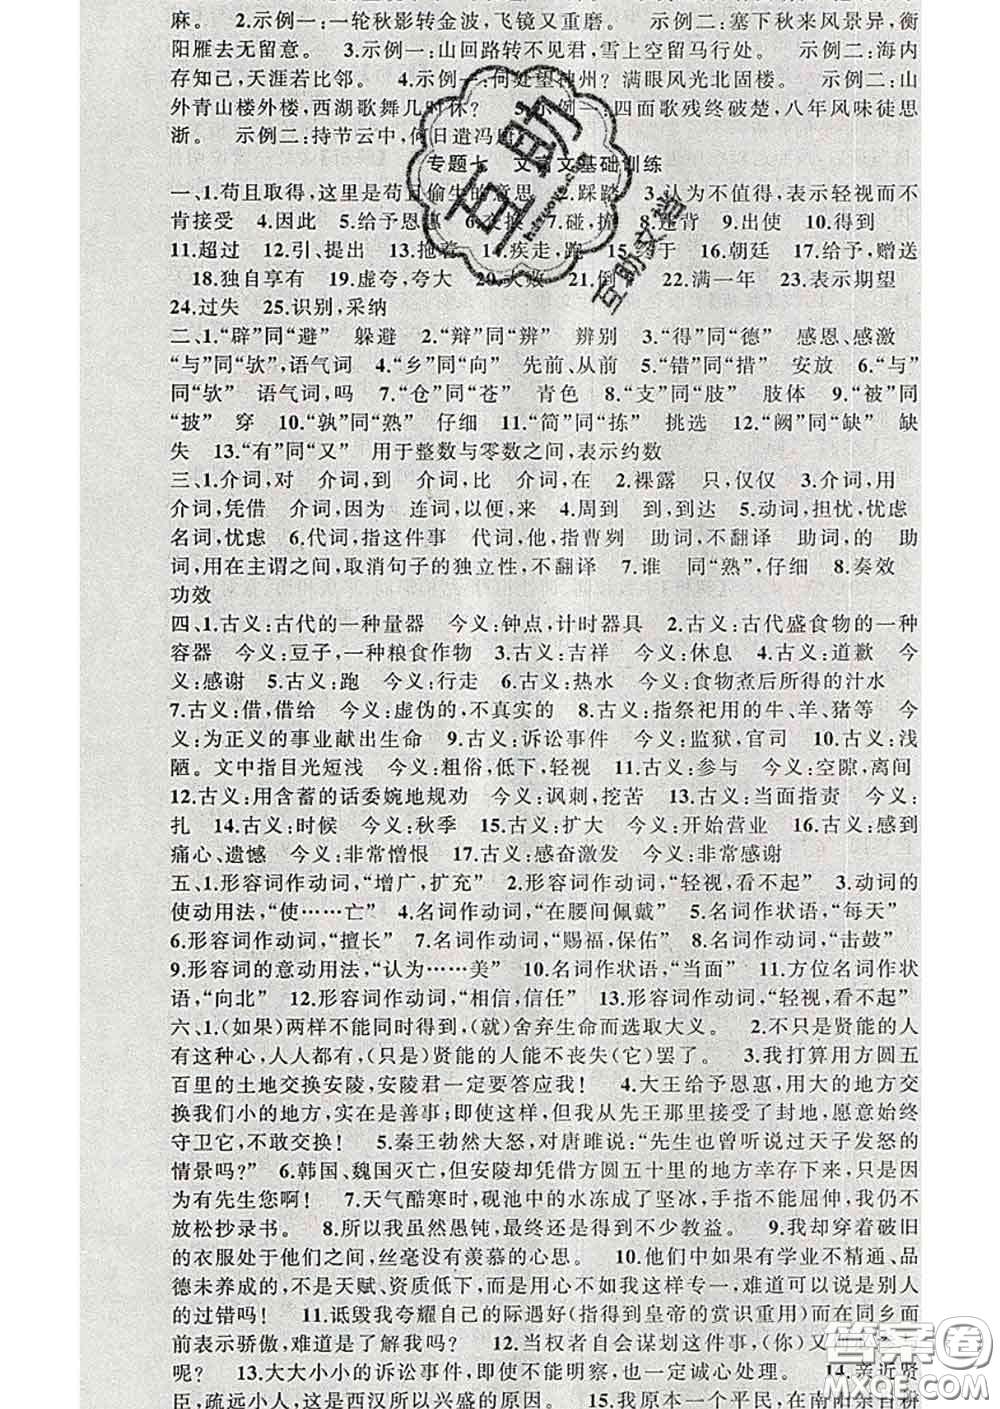 麻。 2.示例一:一轮秋影转金波,飞镜又重磨。 示例二:塞下秋来风景异,衡
阳雁去无留意。 3.示例一:山回路转不见君,雪上空留马行处。 示例二:海内
存知己,天涯若比邻。 4.示例一:何处望神州?满眼风光北固楼。 示例二:山
外青山楼外楼,西湖歌舞几时休? 5.示例一:四面歌残终破楚,八年风味徒思
浙。 示例二:持节云中,何日遣冯唐?
专题七 文言文基础训练
一、1.苟且取得,这里是苟且偷生的意思 2.踩踏 3.认为不值得,表示轻视而不
肯接受 4.因此 5.给予恩惠 6.交换 7.碰,撞 8.违背 9.出使 10.得到
11.超过 12.引、提出 13.拖着 14.疾走,跑 15.终于 16.朝廷 17.给予,赠送
18.独自享有 19.虚夸,夸大 20.大败 21.倒 22.满一年 23.表示期望
24.过失 25.识别,采纳
二、1.“辟”同“避” 躲避 2.“辩”同“辨” 辨别 3.“得”同“德” 感恩、感激
“与”同“欤”,语气词 4.“乡”同“向” 先前、从前 5.“错”同“措” 安放 6.“与”
同“欤” 语气词,吗 7.“仓”同“苍” 青色 8.“支”同“肢” 肢体 9.“被”同
“披” 穿 10.“孰”同“熟” 仔细 11.“简”同“拣” 挑选 12.“阙”同“缺” 缺
失 13.“有”同“又” 用于整数与零数之间,表示约数
三、1.介词,对 介词,到 介词,比 介词,在 2.裸露 只,仅仅 3.介词,用
介词,凭借 介词,因为 连词,以便,来 4.周到 到,到达 5.动词,担忧,忧虑
名词,忧虑 6.代词,指这件事 代词,他,指曹刿 助词,不翻译 助词,的 助
词,用在主谓之间,取消句子的独立性,不翻译 7.谁 同“熟”,仔细 8.奏效
功效
四、1.古义:古代的一种量器 今义:钟点,计时器具 2.古义:古代盛食物的一种
容器 今义:豆子,一种粮食作物 3.古义:吉祥 今义:休息 4.古义:道歉 今
义:感谢 5.古义:跑 今义:行走 6.古义:热水 今义:食物煮后所得的汁水
7.古义:借,借给 今义:虚伪的,不真实的 8.古义:指祭祀用的牛、羊、猪等 今
义:为正义的事业献出生命 9.古义:诉讼事件 今义:监狱,官司 10.古义:浅
陋。文中指目光短浅 今义:粗俗,低下,轻视 11.古义:参与 今义:空隙,离间
12.古义:用含蓄的话委婉地规劝 今义:讽刺,挖苦 13.古义:当面指责 今义:
扎 14.古义:时候 今义:秋季 15.古义:扩大 今义:开始营业 16.古义:感到
痛心、遗憾 今义:非常憎恨 17.古义:感奋激发 今义:非常感谢
五、1.形容词作动词,“增广,扩充” 2.形容词作动词,“轻视,看不起” 3.动词的
使动用法,“使……亡” 4.名词作动词,“在腰间佩戴” 5.名词作状语,“每天”
6.形容词作动词,“擅长” 7.名词作动词,“赐福,保佑” 8.名词作动词,“击鼓”
9.形容词的意动用法,“认为……美” 10.名词作状语,“当面” 11.方位名词作状
语,“向北” 12.形容词作动词,“相信,信任” 13.形容词作动词,“轻视,看不起”
六、1.(如果)两样不能同时得到,(就)舍弃生命而选取大义。 2.不只是贤能的人
有这种心,人人都有,(只是)贤能的人能不丧失(它)罢了。 3.我打算用方圆五
百里的土地交换安陵,安陵君一定要答应我! 4.大王给予恩惠,用大的地方交
换我们小的地方,实在是善事;即使这样,但我从先王那里接受了封地,愿意始终
守卫它,不敢交换! 5.秦王勃然大怒,对唐雎说:“先生也曾听说过天子发怒的
情景吗?” 6.韩国、魏国灭亡,但安陵却凭借方圆五十里的地方幸存下来,只是因
为有先生您啊! 7.天气酷寒时,砚池中的水冻成了坚冰,手指不能屈伸,我仍不
放松抄录书。 8.所以我虽然愚钝,最终还是得到不少教益。 9.我却穿着破旧
的衣服处于他们之间,丝毫没有羡慕的心思。 10.他们中如果有学业不精通、品
德未养成的,不是天赋、资质低下,而是用心不如我这样专一,难道可以说是别人
的过错吗! 11.诋毁我夸耀自己的际遇好(指得到皇帝的赏识重用)而在同乡面
前表示骄傲,难道是了解我吗? 12.当权者自会谋划这件事,(你)又何必参与
呢? 13.大大小小的诉讼事件,即使不能明察,也一定诚心处理。 14.亲近贤
臣,疏远小人,这是西汉所以兴盛的原因。 15.我原本一个平民,在南阳亲自耕
互助
互助文档
答案圈
MXQE.COM